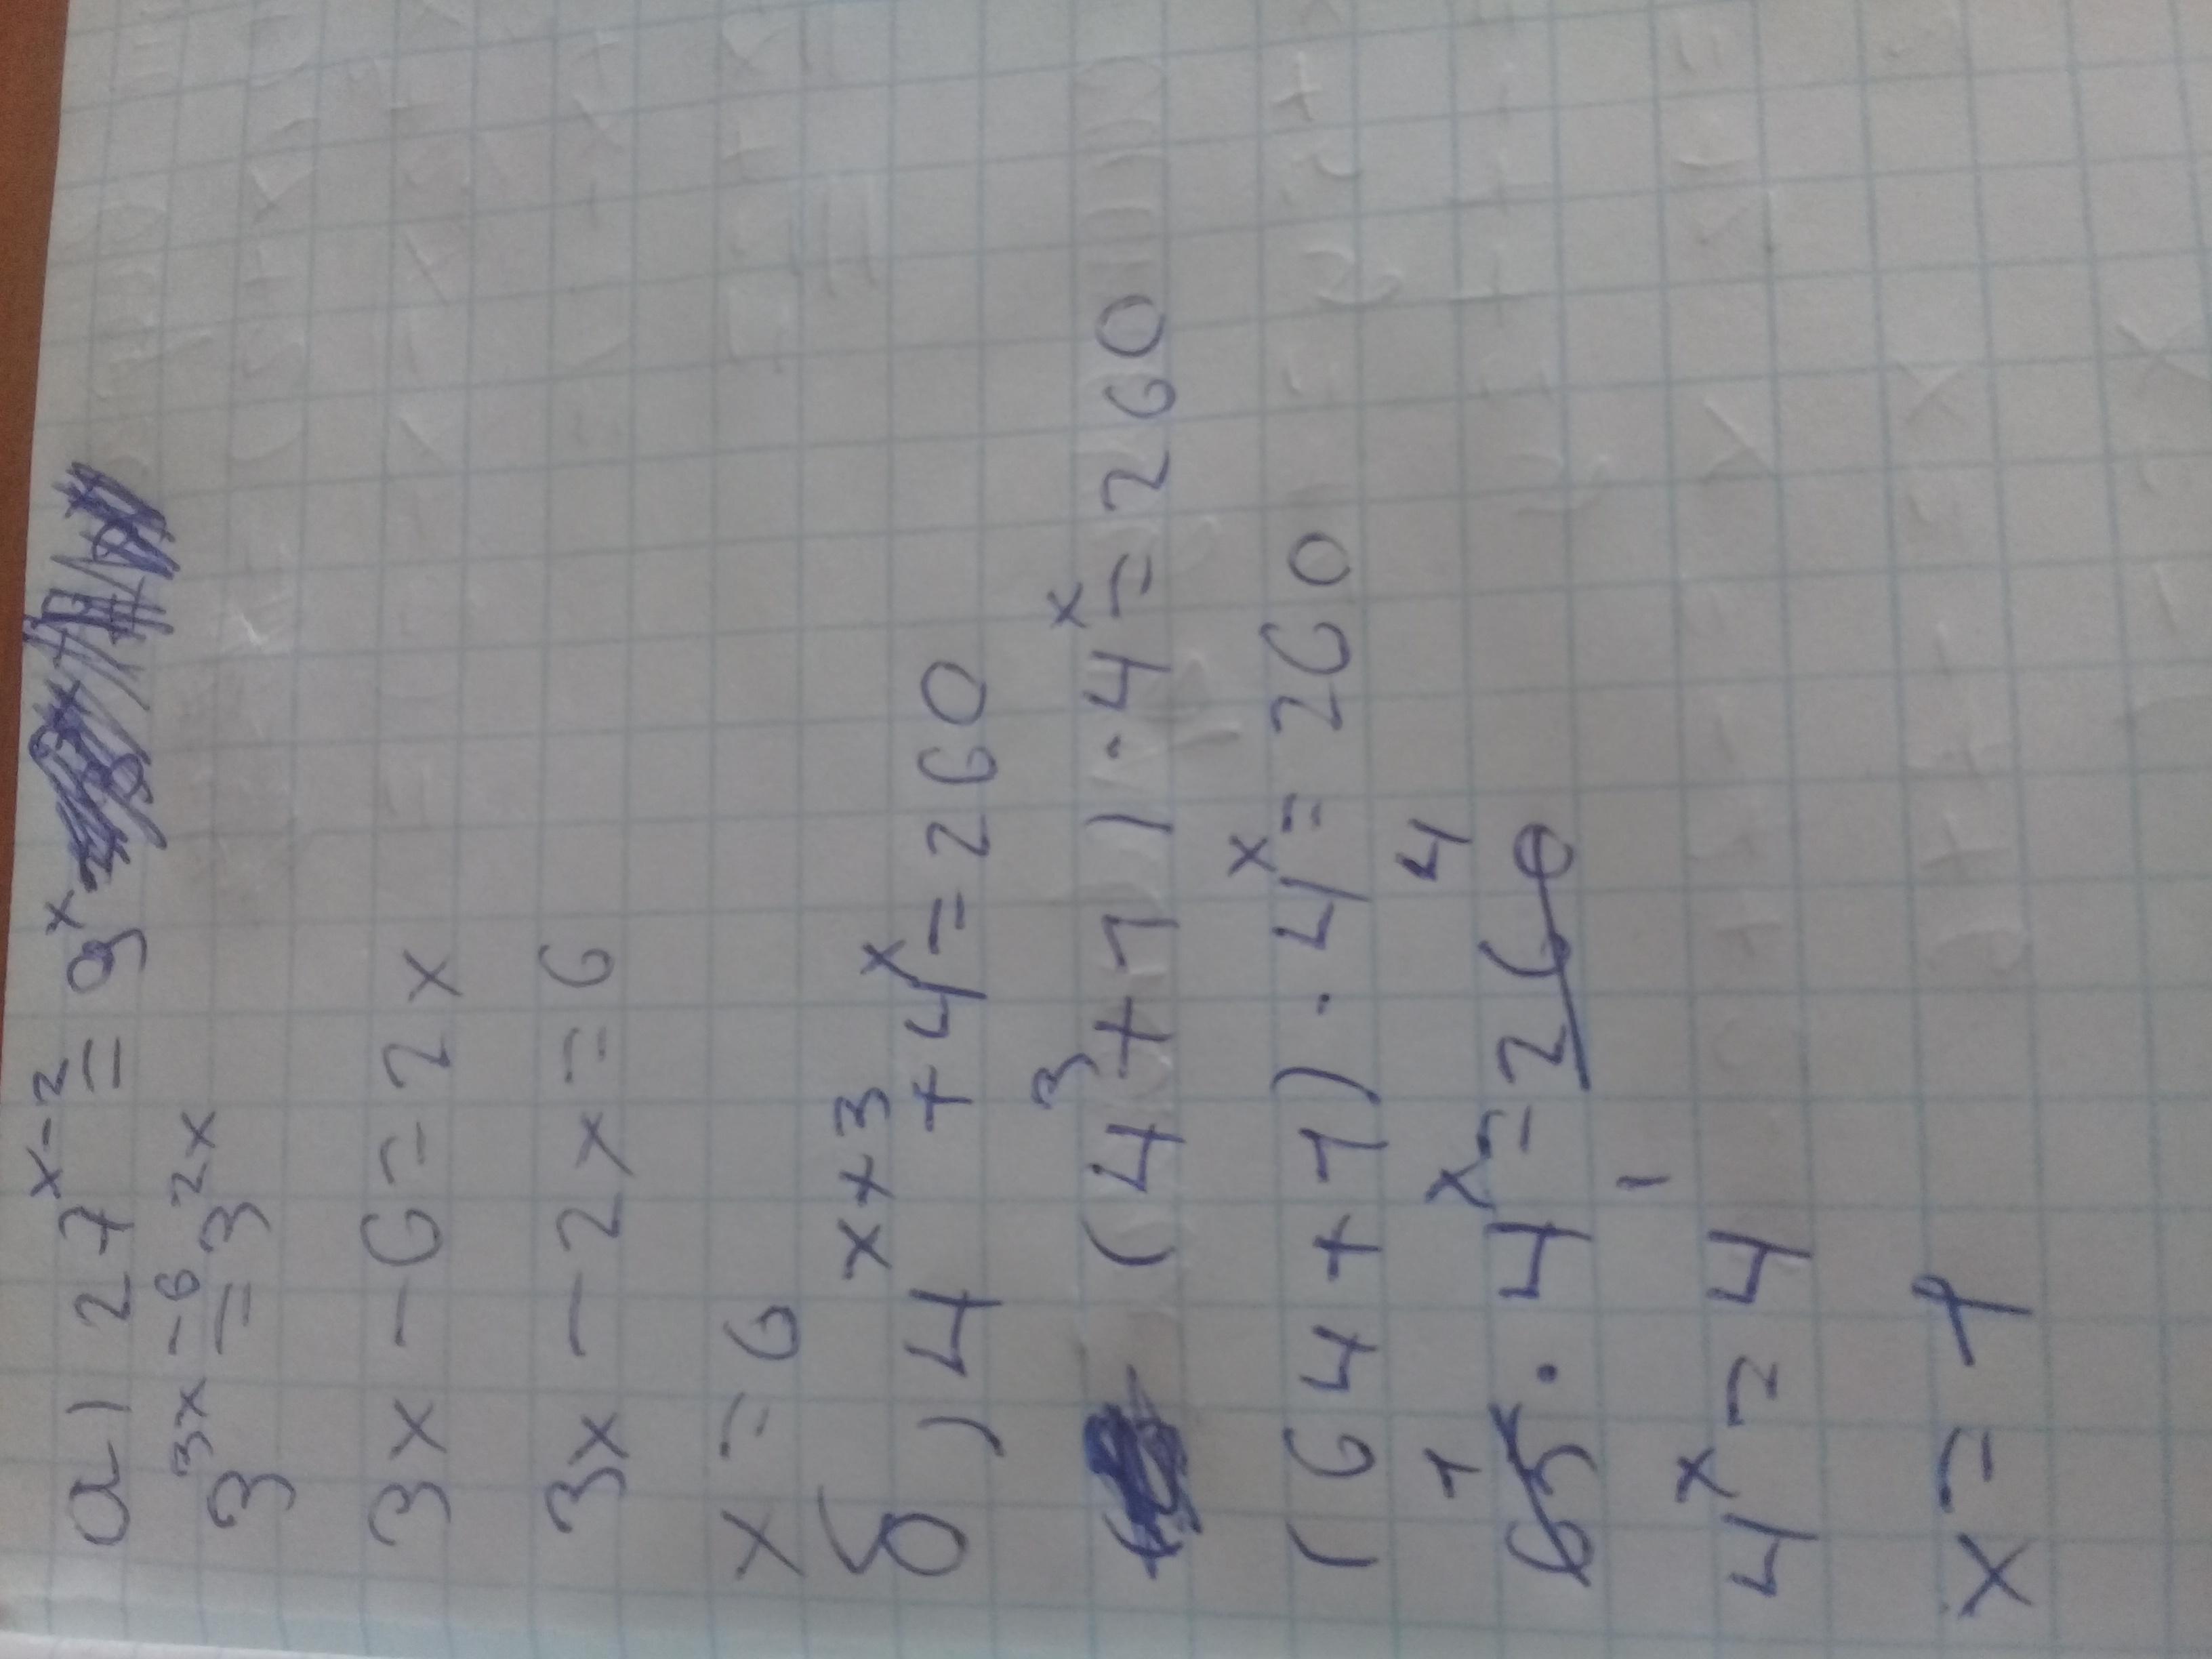 а) 27^(x-2) = 9^x
3^(3x-6) = 3^(2x)
3x - 6 = 2x
3x - 2x = 6
x = 6
б) 4^(x+3) + 4^x = 260
(4^3 + 1) · 4^x = 260
(64 + 1) · 4^x = 260
1 4
65 · 4^x = 260
4^x = 4^1
x = 1